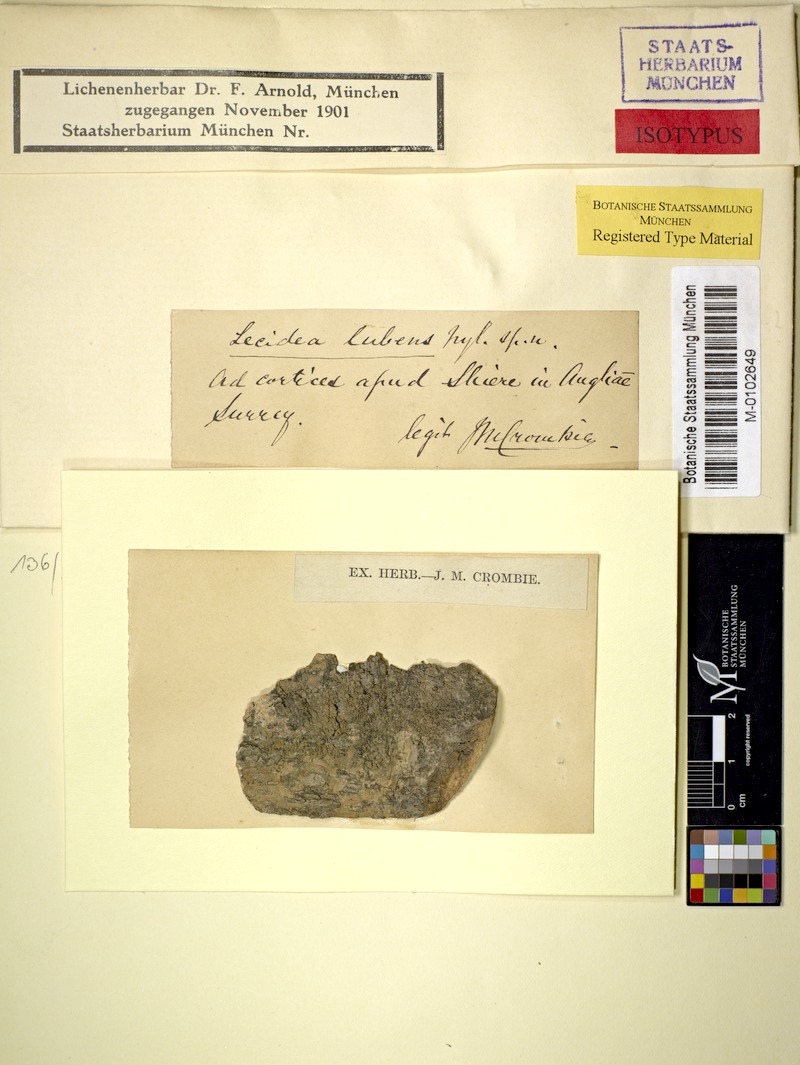 STAATS-
HERBARIUM
MÜNCHEN
Lichenenherbar Dr. F. Arnold, München
zugegangen November 1901
Staatsherbarium München Nr.
ISOTYPUS
BOTANISCHE STAATSSAMMLUNG
MÜNCHEN
Registered Type Material
Lecidea lubens Nyl. sp. n.
Ad cortices apud Shiere in Angliae
Surrey.
legit JMCrombie
Botanische Staatssammlung München
M-0102649
136/
EX. HERB.—J. M. CROMBIE.
BOTANISCHE
STAATSSAMMLUNG
MÜNCHEN
copyright reserved
0 1 2
cm